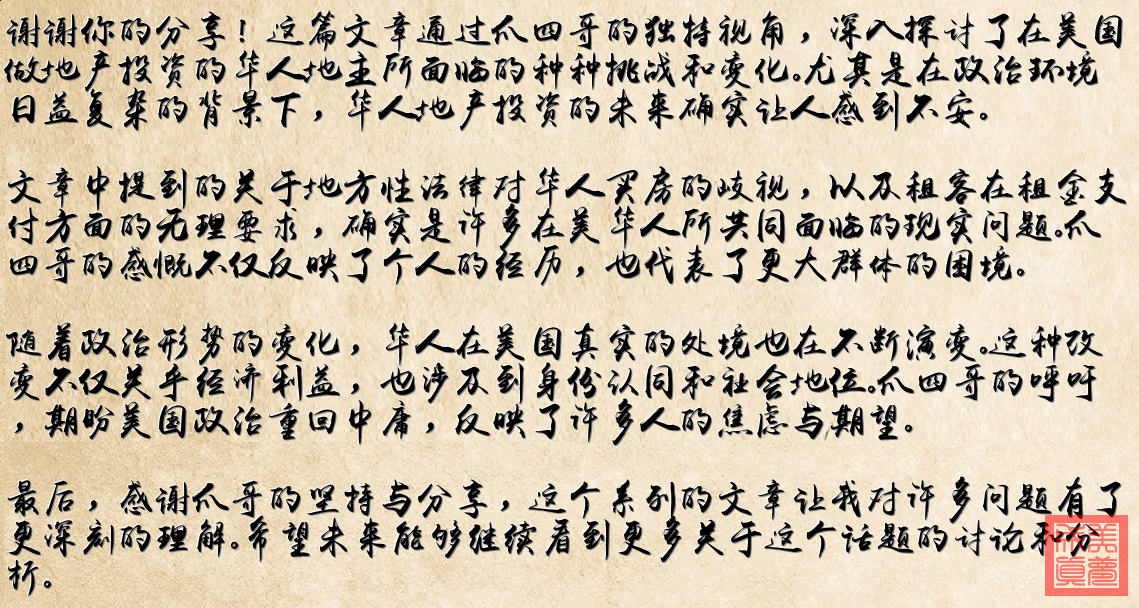 谢谢你的分享！这篇文章通过爪四哥的独特视角，深入探讨了在美国
做地产投资的华人地主所面临的种种挑战和变化。尤其是在政治环境
日益复杂的背景下，华人地产投资的未来确实让人感到不安。
文章中提到的关于地方性法律对华人买房的歧视，以及租客在租金支
付方面的无理要求，确实是许多在美华人所共同面临的现实问题。爪
四哥的感慨不仅反映了个人的经历，也代表了更大群体的困境。
随着政治形势的变化，华人在美国真实的处境也在不断演变。这种改
变不仅关乎经济利益，也涉及到身份认同和社会地位。爪四哥的呼吁
，期盼美国政治重回中庸，反映了许多人的焦虑与期望。
最后，感谢爪哥的坚持与分享，这个系列的文章让我对许多问题有了
更深刻的理解。希望未来能够继续看到更多关于这个话题的讨论和分
析。